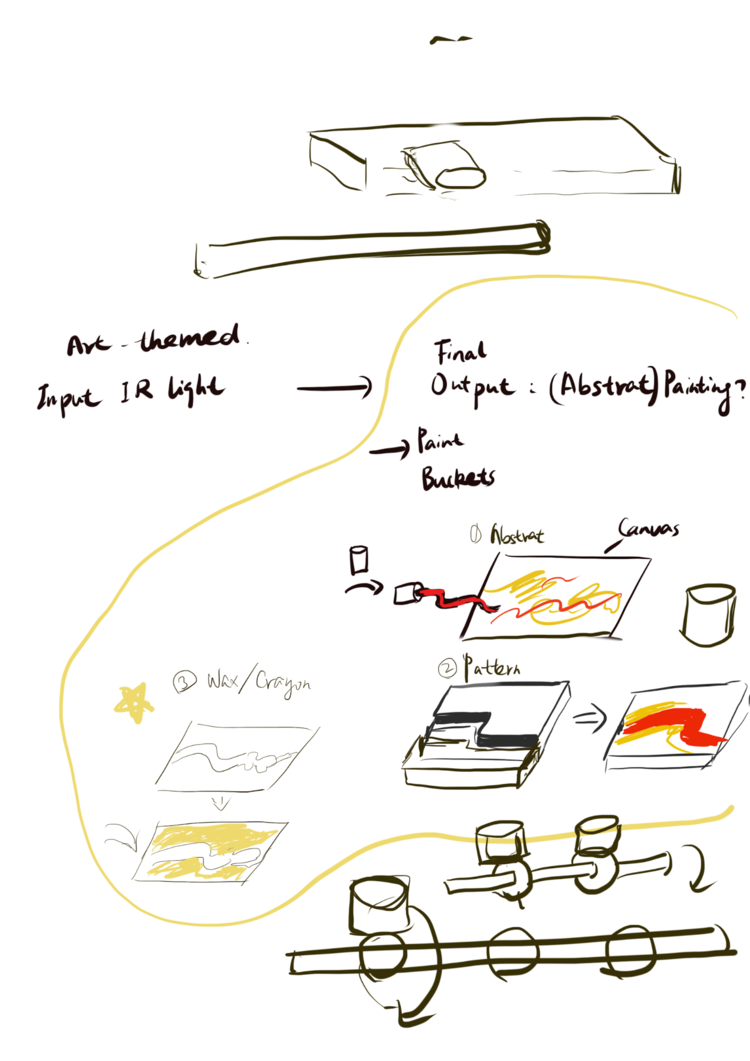 Art-themed.
Input IR light
Final
Output : (Abstrat) Painting?
Paint
Buckets
① Abstrat
Canvas
② Pattern
③ Wax/Crayon